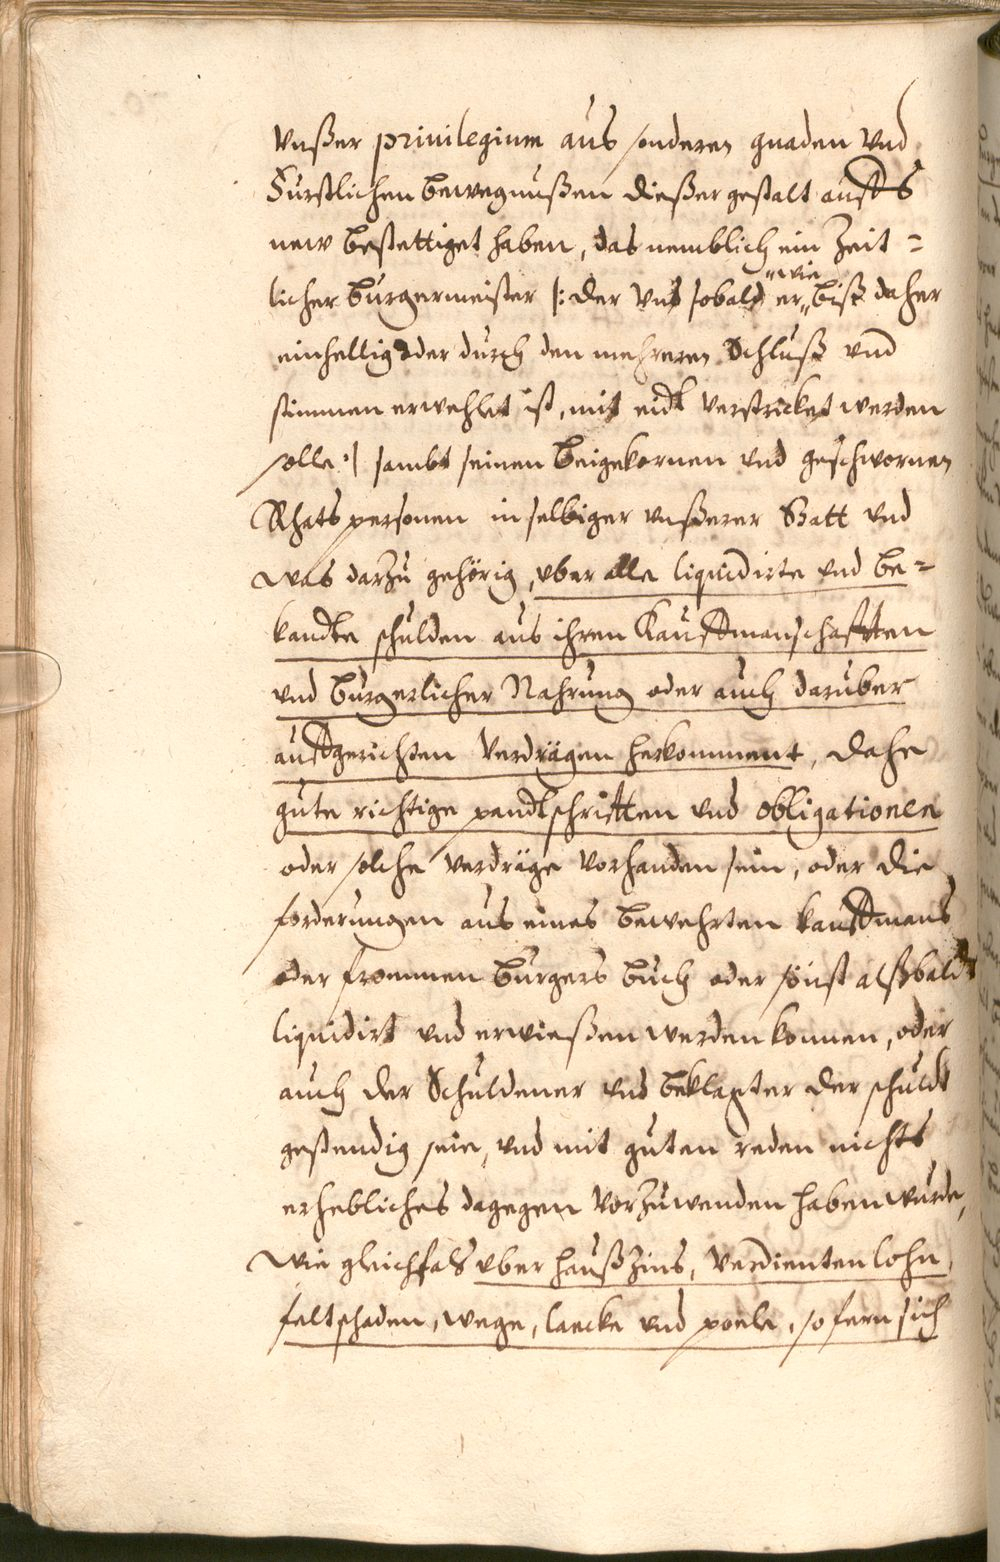 vnßer privilegium aus sonderen gnaden vnd
Furstlichen bewegnußen dießer gestalt auffs
new bestettiget haben, das nemblich ein Zeit =
licher Burgermeister |: der vns sobald er „wie„ biß daher
einhellig oder durch den mehreren Schluß vnd
stimmen erwehlet ist, mit eidt verstricket werden
solle :| sambt seinen beigekornen vnd geschwornen
Rhats personen in selbiger vnßerer Statt vnd
was darzu gehörig, vber alle liquidirte vnd be=
kandte schulden aus ihren Kauffmanschafften
vnd burgerlicher Nahrung oder auch daruber
auffgerichten verdrägen herkomment, dahe
gute richtige pandtschrifften vnd obligationen
oder solche verdräge vorhanden sein, oder die
forderungen aus eines bewehrten kauffmans
oder frommen burgers buch oder sonst alßbaldt
liquidirt vnd erwießen werden konnen, oder
auch der Schuldener vnd beklagter der schuldt
gestendig seie, vnd mit guten reden nichts
erhebliches dagegen vorzuwenden haben wurde,
wie gleichfals vber haußzins, verdienten lohn,
feltschaden, wege, laecke vnd poele, so fern sich